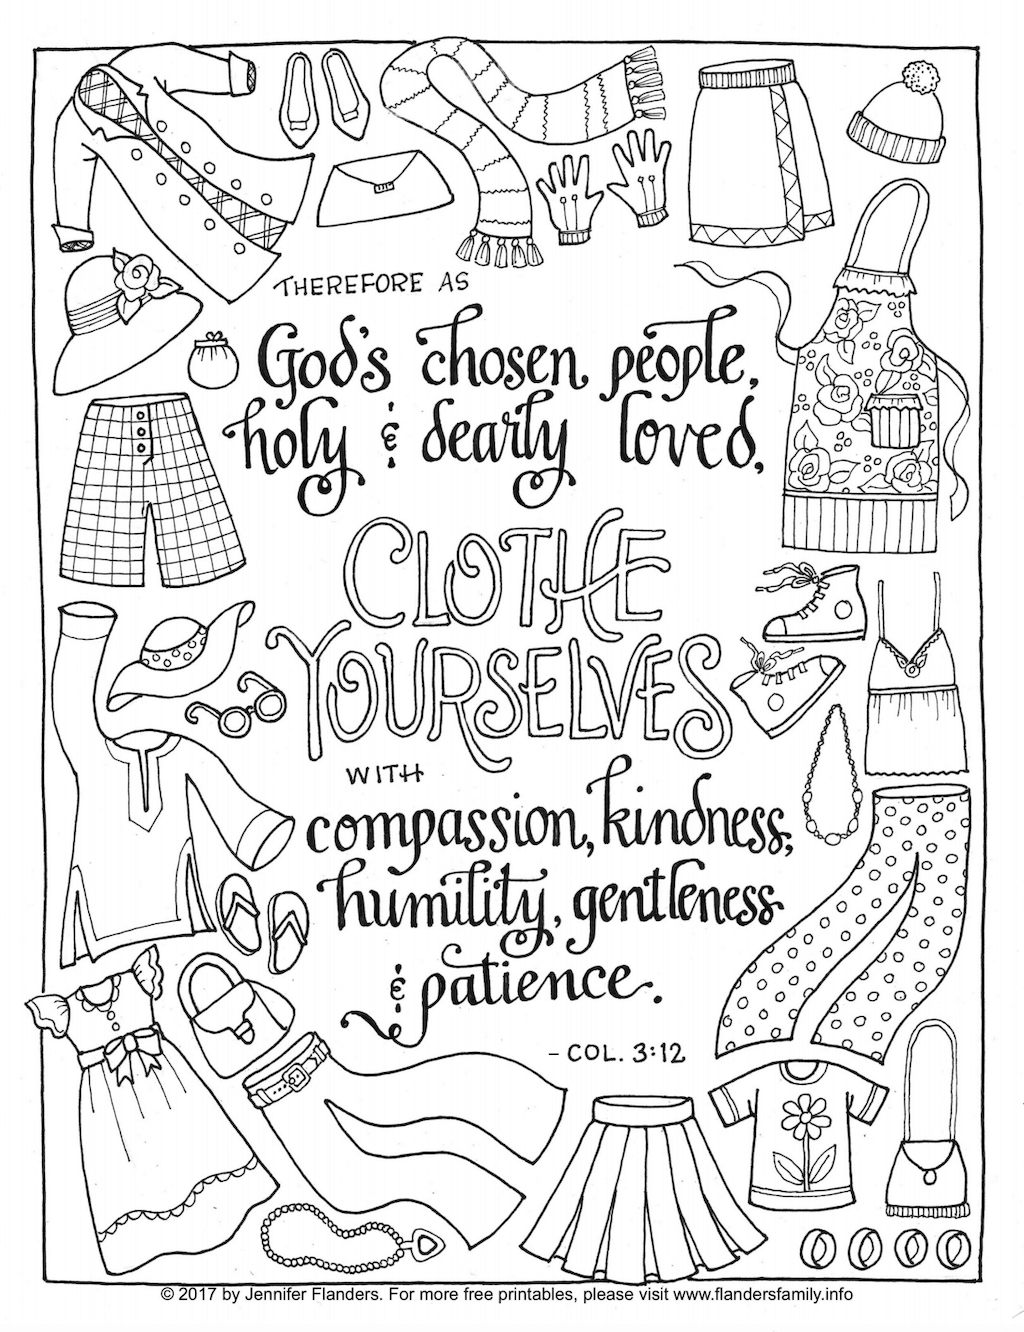 THEREFORE AS
God's chosen people,
holy & dearly loved,
CLOTHE
YOURSELVES
WITH
compassion, kindness,
humility, gentleness
& patience.
- COL. 3:12
© 2017 by Jennifer Flanders. For more free printables, please visit www.flandersfamily.info